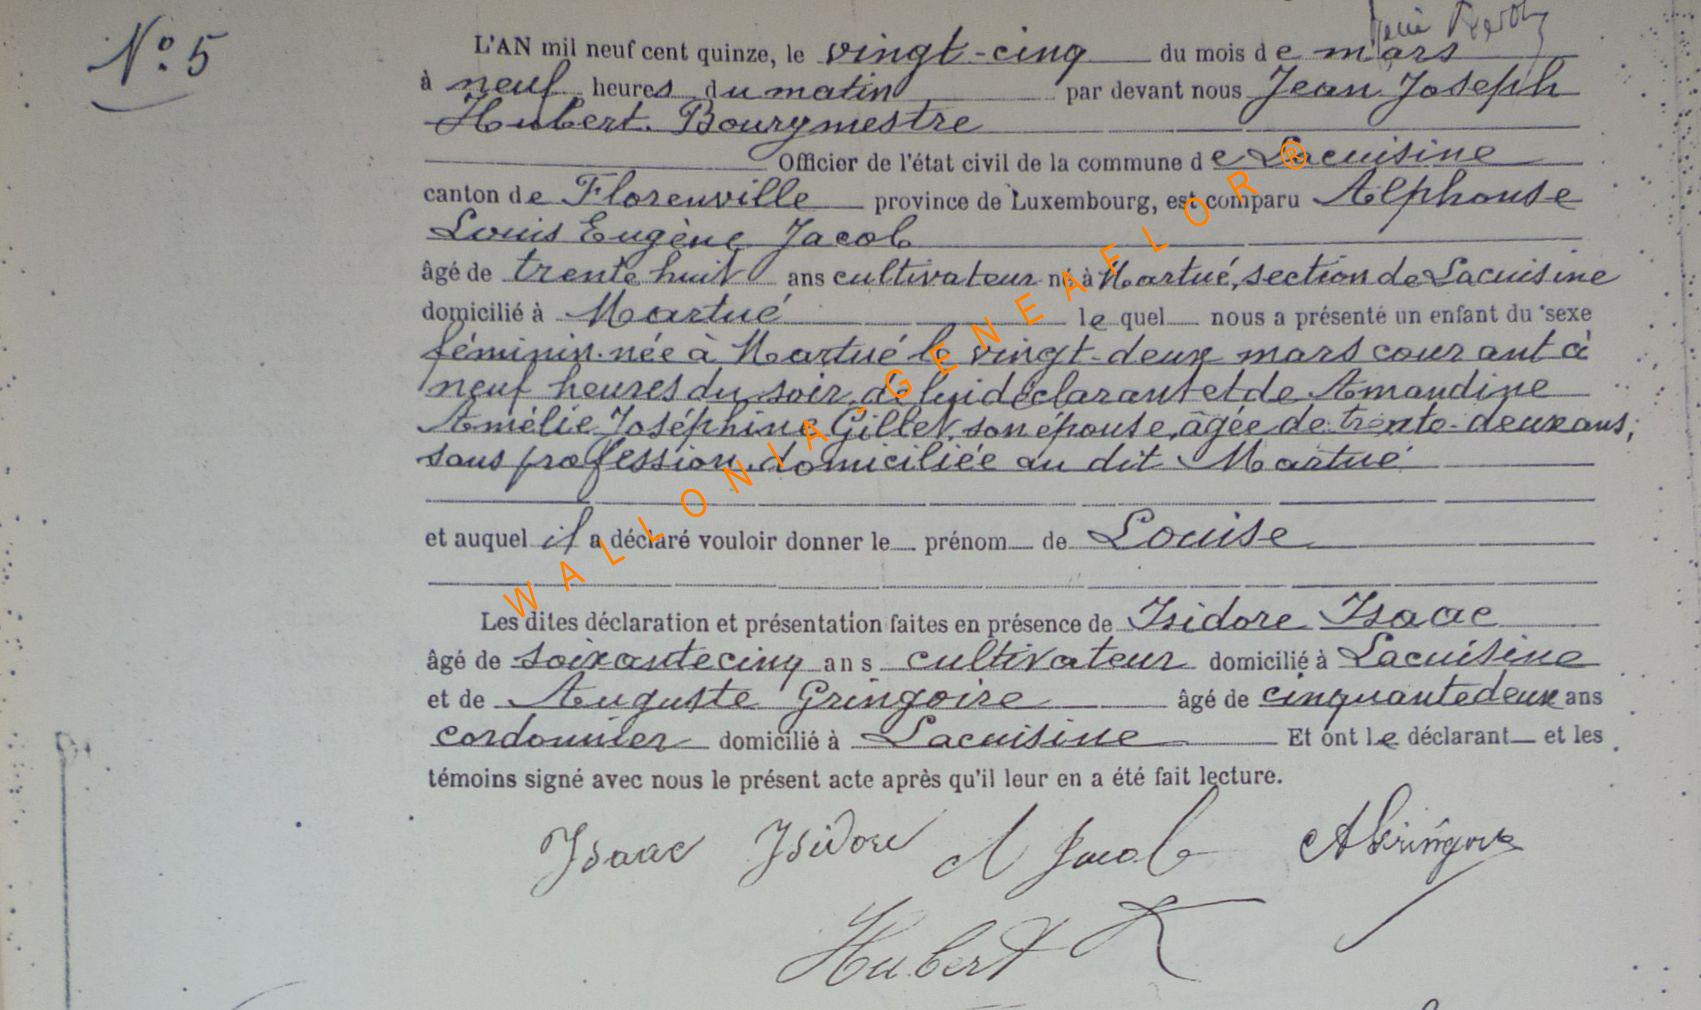 N° 5
L'AN mil neuf cent quinze, le vingt-cinq du mois de mars
à neuf heures du matin par devant nous Jean Joseph
Hubert. Bourgmestre
Officier de l'état civil de la commune de Lacuisine
canton de Florenville province de Luxembourg, est comparu Alphonse
Louis Eugène Jacob
âgé de trente huit ans cultivateur né à Martué, section de Lacuisine
domicilié à Martué le quel nous a présenté un enfant du sexe
féminin. née à Martué le vingt-deux mars courant à
neuf heures du soir, de lui déclarant et de Amandine
Amélie Joséphine Gillet, son épouse, âgée de trente-deux ans,
sans profession, domiciliée au dit Martué
et auquel il a déclaré vouloir donner le prénom de Louise
Les dites déclaration et présentation faites en présence de Isidore Isaac
âgé de soixante cinq ans cultivateur domicilié à Lacuisine
et de Auguste Gringoire âgé de cinquante deux ans
cordonnier domicilié à Lacuisine Et ont le déclarant et les
témoins signé avec nous le présent acte après qu'il leur en a été fait lecture.
Isaac Isidore A Jacob A Gringoire
Hubert
WALLONIA-GENEAFLOR®